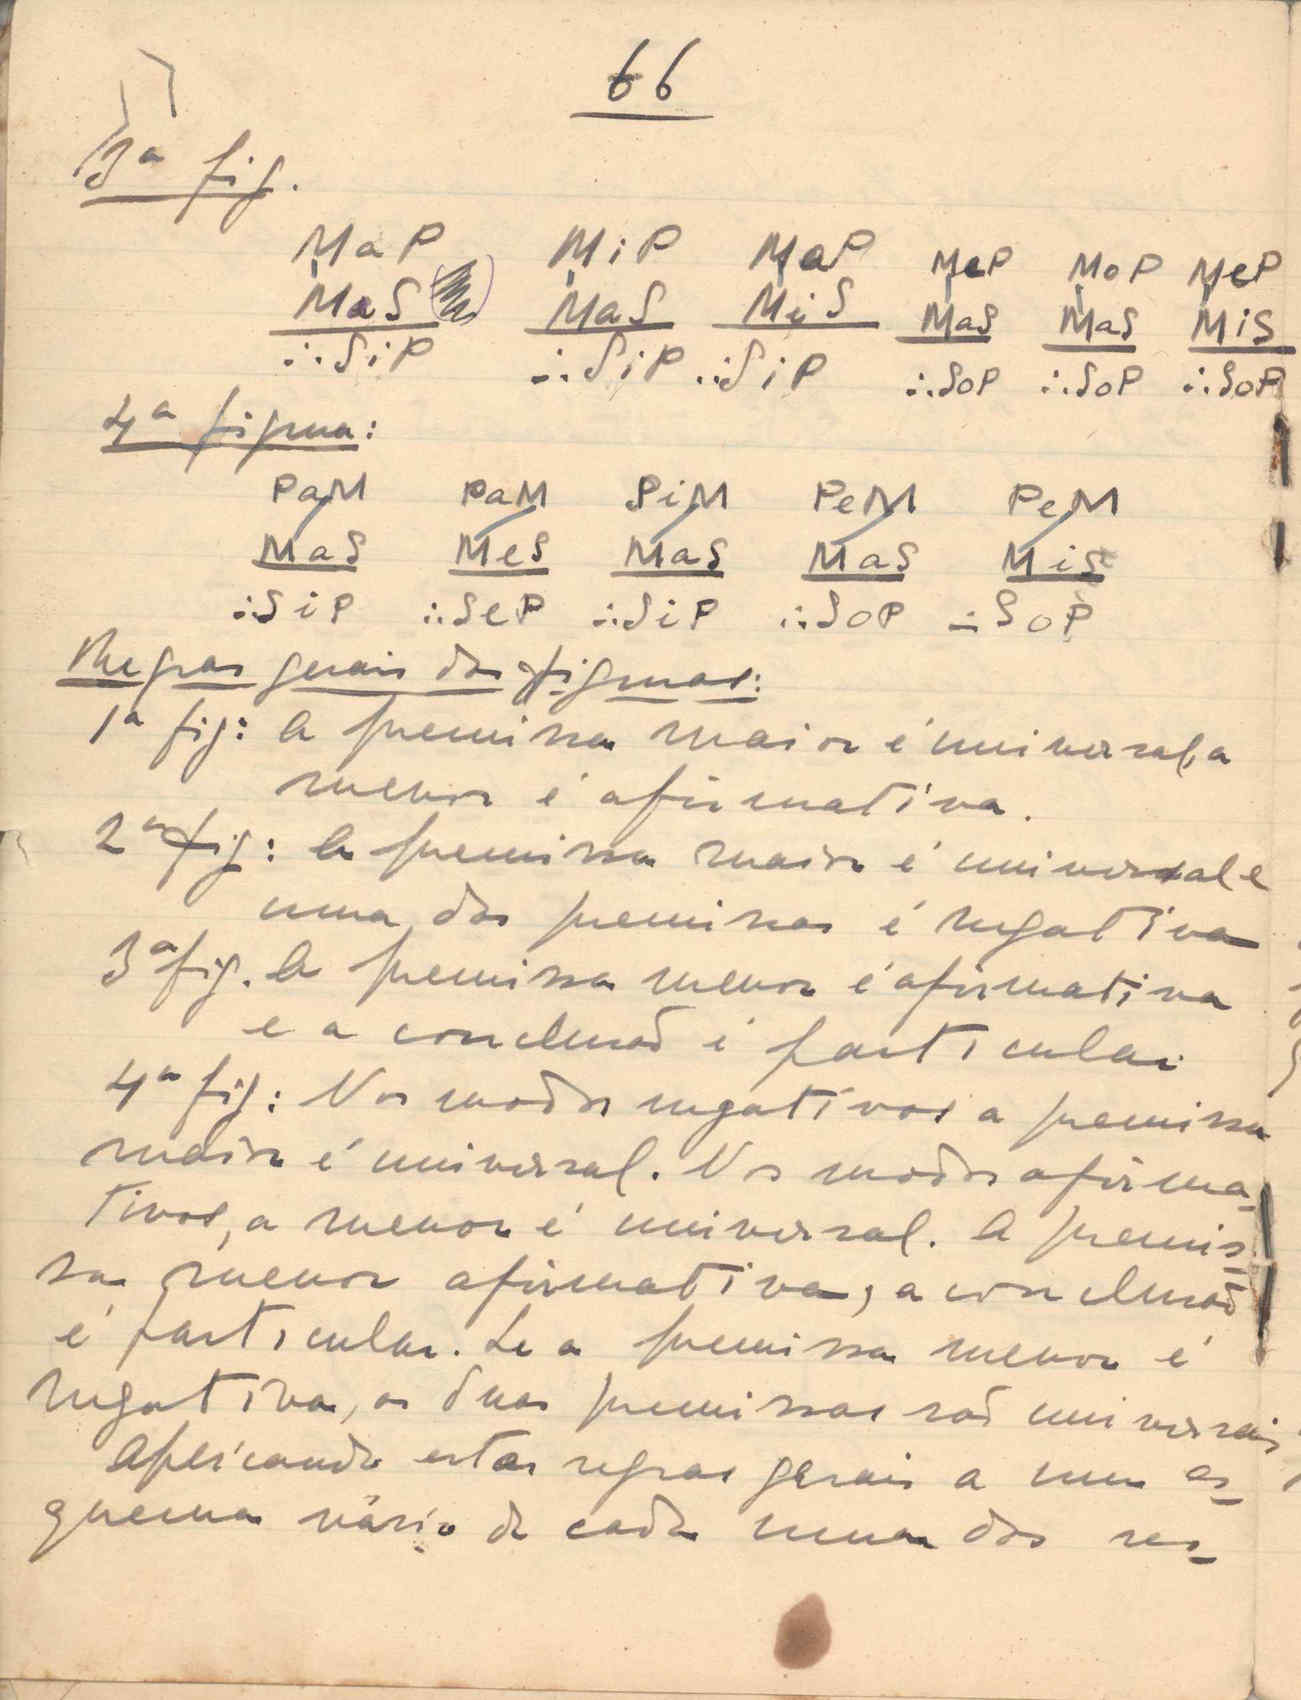 66
3ª fig.
MaP MiP MaP MeP MoP MeP
MaS MaS MiS MaS MaS MiS
∴SiP ∴SiP ∴SiP ∴SoP ∴SoP ∴SoP
4ª figura:
PaM PaM PiM PeM PeM
MaS MeS MaS MaS MiS
∴SiP ∴SeP ∴SiP ∴SoP ∴SoP
Regras gerais das figuras:
1ª fig: A premissa maior é universal, a
menor é afirmativa.
2ª fig: A premissa maior é universal e
uma das premissas é negativa
3ª fig. A premissa menor é afirmativa
e a conclusão é particular
4ª fig: Nos modos negativos a premissa
maior é universal. Nos modos afirma-
tivos, a menor é universal. A premis-
sa menor afirmativa, a conclusão
é particular. Se a premissa menor é
negativa, as duas premissas são universais
Aplicando estas regras gerais a um es-
quema vário de cada uma das res-